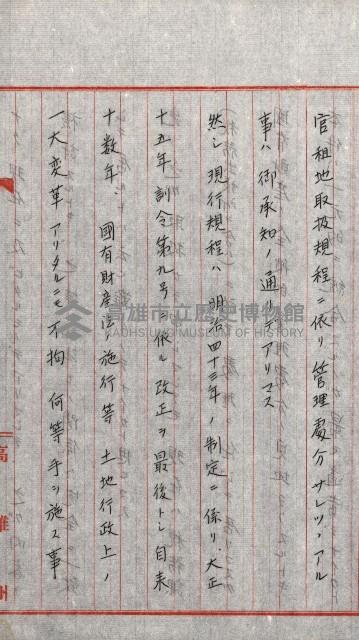 官租地取扱規程ニ依リ管理處分サレツヽアル
事ハ御承知ノ通リデアリマス
然シ現行規程ハ明治四十三年ノ制定ニ係リ、大正
十五年訓令第九号ニ依ル改正ヲ最後トシ自来
十数年 國有財産法ノ施行等 土地行政上ノ
一大変革アリタルニモ不拘 何等手ヲ施ス事
高雄州
高雄市立歷史博物館
KAOHSIUNG MUSEUM OF HISTORY